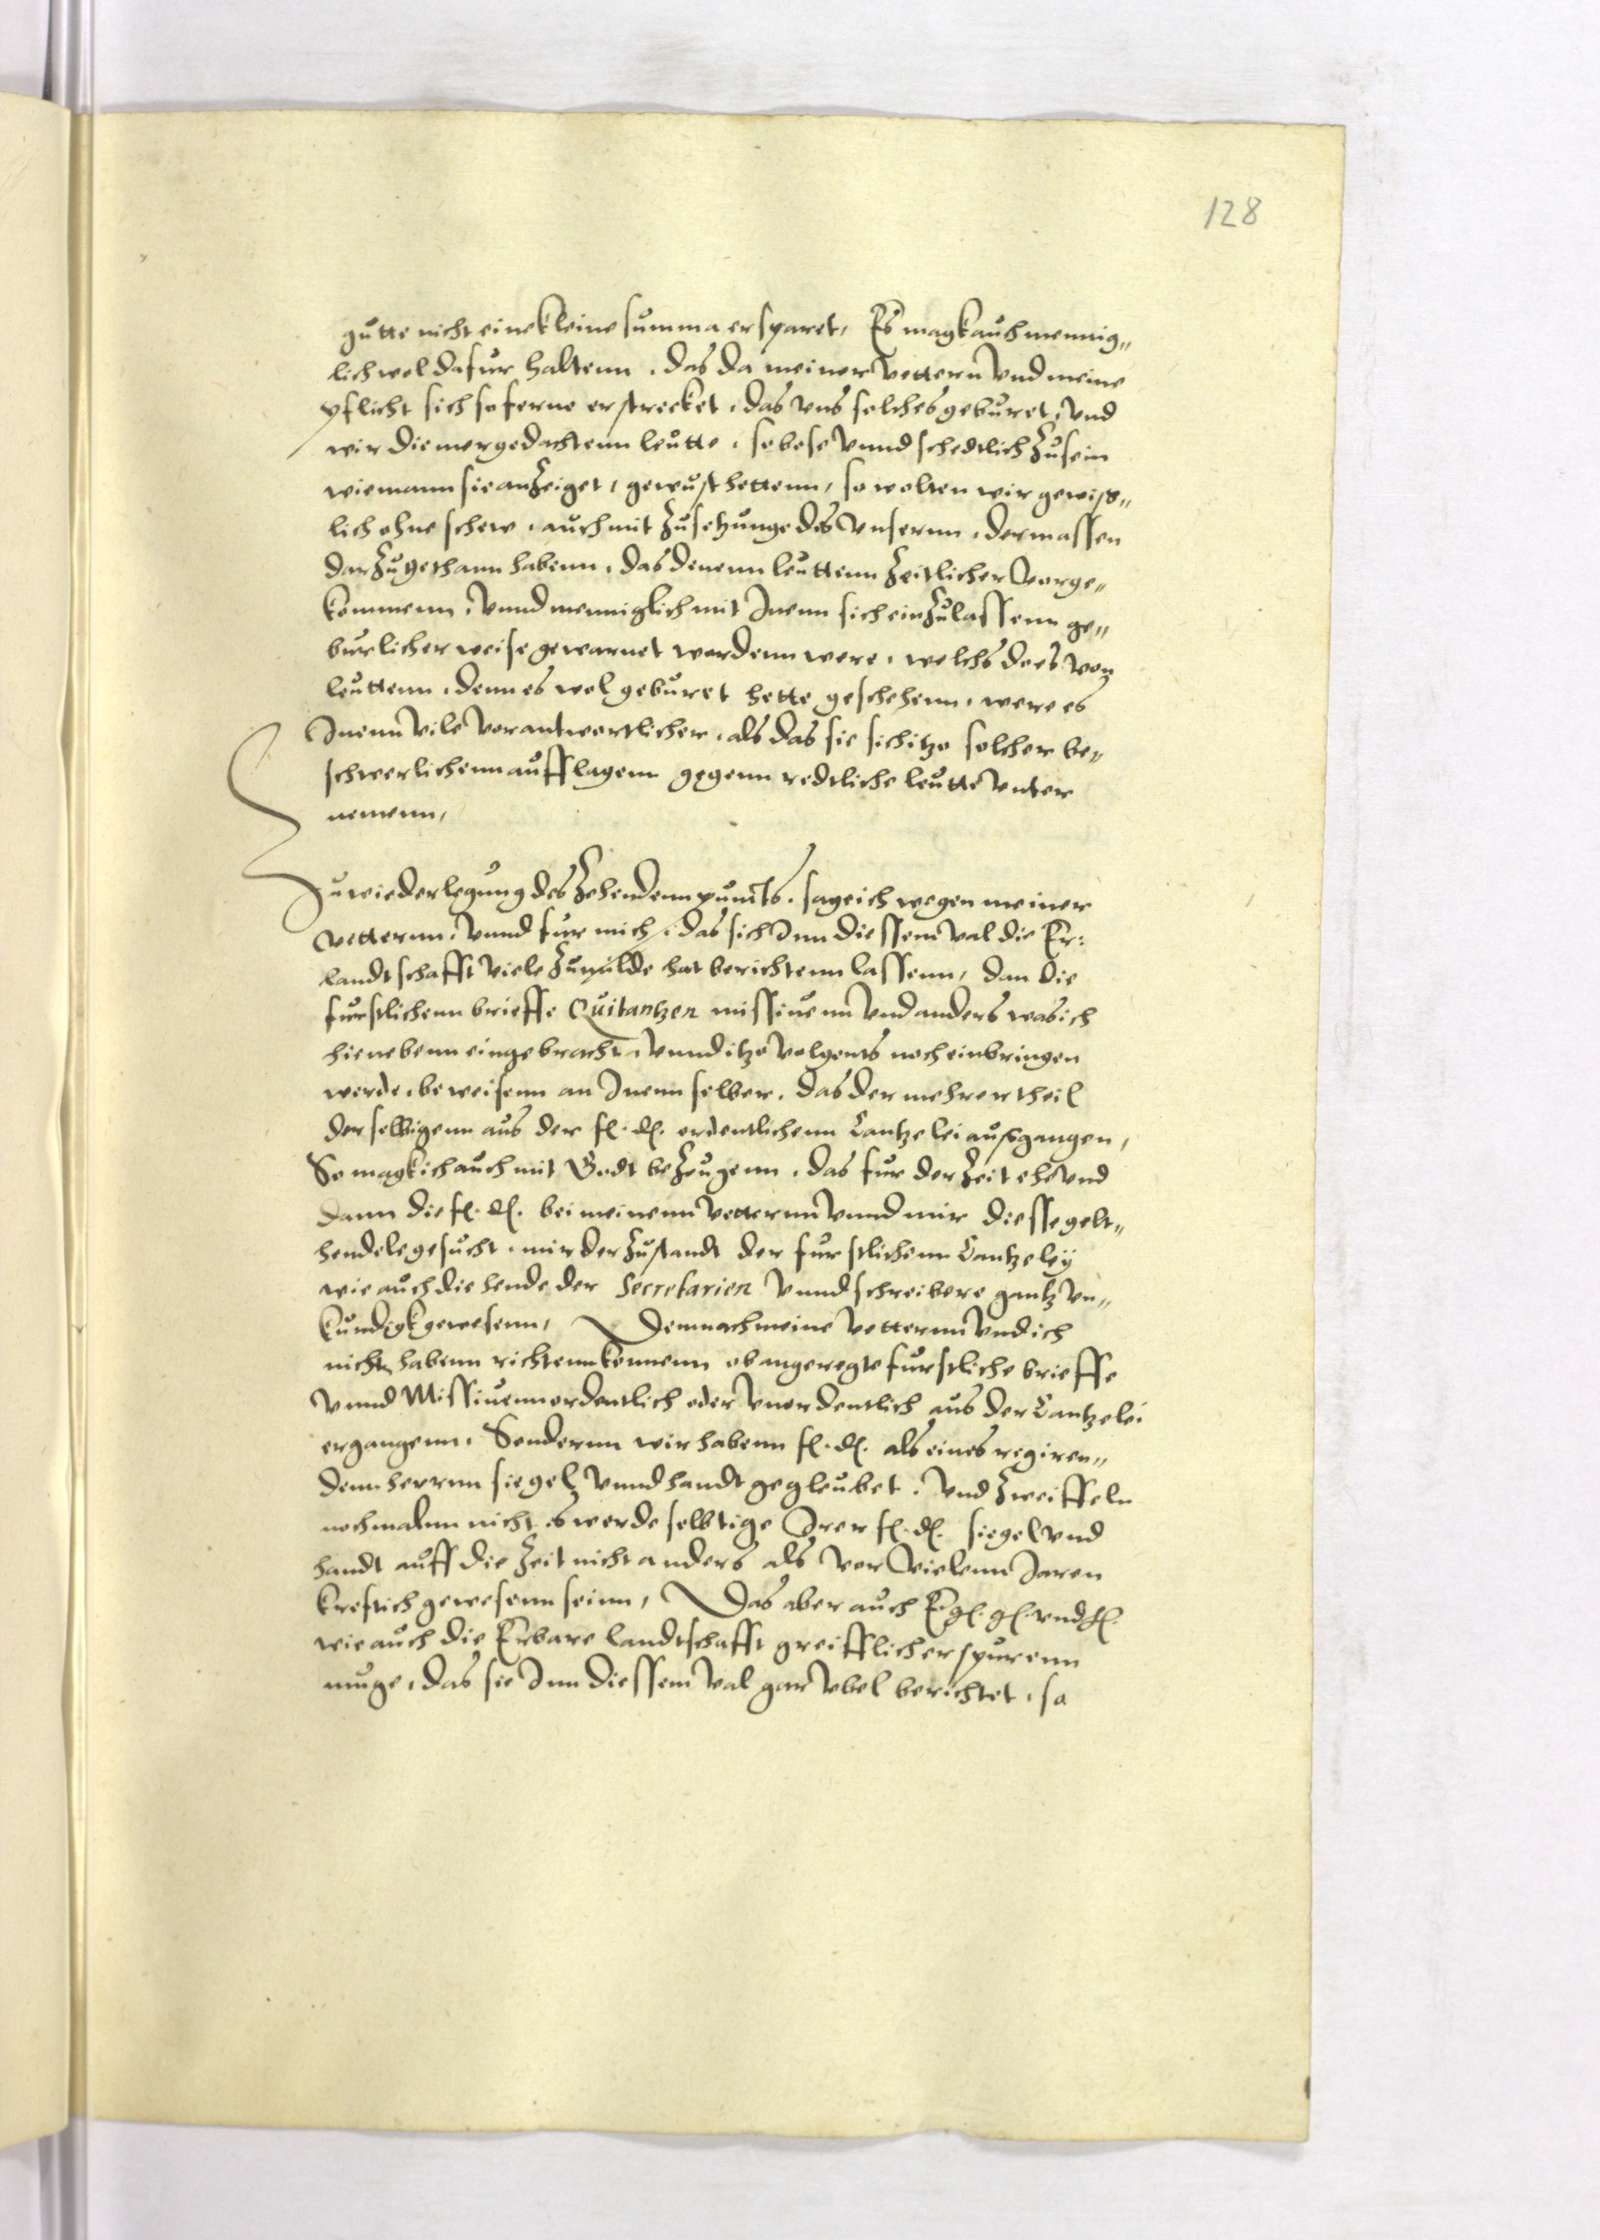 128
gutte nicht eine kleine summa ersparet, Es magk auch mennig„
lich wol dafur haltenn, das da meiner vettern vnd meine
pflicht sich soferne erstrecket, das vns solches geburet, vnd
wir die mergedachtenn leutte, so bose vnnd schedtlich zu sein
wie mann sie anzeiget, gewust hettenn, so wolten wir gewiß„
lich ohne schew, auch mit zusetzunge des vnsernn, dermassen
darzu gethann habenn, das denenn leuttenn zeitlicher vorge„
kommenn, vnnd menniglich mit Inenn sich einzulassenn ge„
burlicher weise gewarnet wordenn were, welchs do es von
leuttenn, denn es wol geburet hette geschehenn, were es
Inenn vile verantwortlicher, als das sie sich itzo solcher be„
schwerlichenn aufflagenn gegenn redtliche leutte vnter
nemenn,
Zu wiederlegung des zehendenn puncts, sage ich wegen meiner
vetternn, vnnd fur mich, das sich Inn diessem val die Er:
landtschafft viele zu milde hat berichtenn lassenn, dan die
furstlichenn brieffe Quitantzen missiuenn vnd anders was ich
hienebenn eingebracht, vnnd itzo volgents noch einbringen
werde, beweisenn an Inenn selber, das der mehrer theil
derselbigenn aus der fl. dl. ordentlichenn Cantzelei außgangen,
So magk ich auch mit Godt bezeugenn, das fur der zeit ehe vnd
dann die fl. dl. bei meinenn vetternn vnnd mir diesse gelt„
hendele gesucht, mir der zustandt der furstlichenn Cantzeley
wie auch die hende der Secretarien vnnd schreibere gantz vn„
kundigk gewesenn, Demnach meine vetternn vnd ich
nicht habenn richtenn konnenn ob angeregte furstliche brieffe
vnnd Missiuenn ordentlich oder vnordentlich aus der Cantzelei
ergangenn, Sondernn wir habenn fl. dl. als eines regiren„
denn herrnn siegel vnnd handt gegleubet, vnd zweiffeln
nochmalnn nicht es werde selbtige Irer fl. dl. siegel vnd
handt auff die zeit nicht anders als vor vielenn Jaren
kreftich gewesenn seinn, Das aber auch E. gl. gl. vnd fl.
wie auch die Erbare landtschafft greifflicher spurenn
muge, das sie Inn diessem val gar vbel berichtet, so